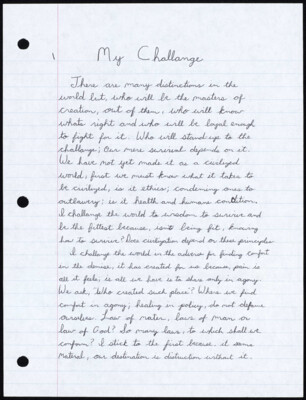 1
My Challange
There are many distinctions in the
world but, who will be the masters of
creation, out of them, who will know
whats right and who will be loyal enough
to fight for it. Who will stand up to the
challange; Our mere servival depends on it.
We have not yet made it as a curlized
world, first we must know what it takes to
be curlized, is it ethics; condeming ones to
outlawry; is it health and humane condition.
I challange the world to wisdom to survive and
be the fittest because, isnt being fit, knowing
how to survive? Does curlization depend on these principles
I challange the world in the exterior for finding comfort
in the demise, it has created for me because pain is
all it feels, is all we have is to share only in agony.
We ask, Who created such place? Where we find
comfort in agony; healing in , do not defeine
ourselves. Law of mater, laws of man or
law of God? So many laws, to which shall we
conform? I stick to the first because it some
Material, our destination is distruction without it.